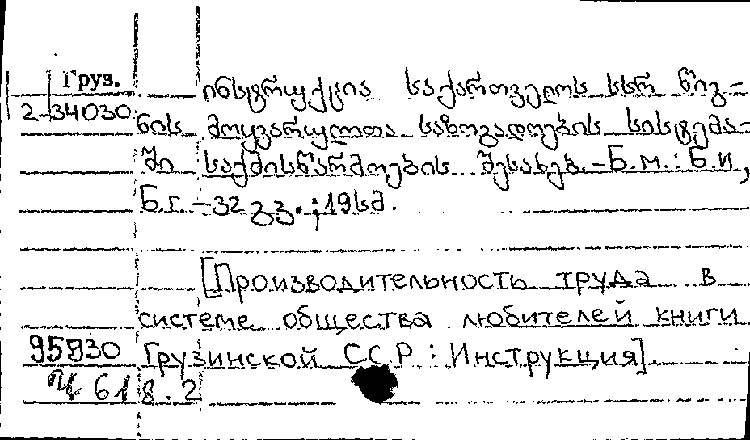 Груз.
ინსტრუქცია საქართველოს სსრ წიგ-
2-34030
ნის მოყვარულთა საზოგადოების სისტემა-
ში საქმისწარმოების შესახებ. - Б.м.: Б.и,
Б.г. - 32 გვ.; 19 სმ.
[Производительность труда в
системе общества любителей книги
95930 Грузинской ССР : Инструкция].
618.2